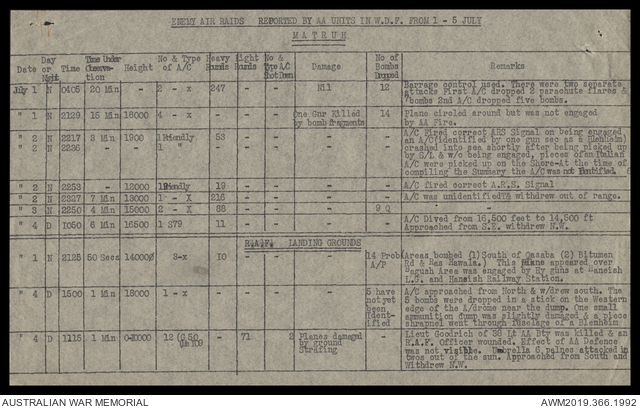 ENEMY AIR RAIDS REPORTED BY AA UNITS IN W.D.F. FROM 1 - 5 JULY
MATRUH
Date Day or Night Time Time Under Observation Height No & Type of A/C Heavy Rounds Light Rounds No & Type A/C Shot Down Damage No of Bombs Dropped Remarks
July 1 N 0405 20 Min - 2 - X 247 - - Nil 12 Barrage control used. There were two separate
attacks First A/C dropped 2 parachute flares &
7bombs 2nd A/C dropped five bombs.
" 1 N 2129 15 Min 16000 4 - X - - - One Gnr Killed by bomb fragments 14 Plane circled around but was not engaged
by AA Fire.
" 2 N 2217 3 Min 1900 1Friendly 53 - - - - A/C Fired correct ARS Signal on being engaged
" 2 N 2236 - - 1 " - - - - - an A/C(identified by one gun sec as a
crashed into sea shortly after being picked up
by S/L & w/o being engaged, pieces of an Italian
A/C were picked up on the Shore-At the time of
compiling the Summary the A/C was not identified.
" 2 N 2253 - 12000 Friendly 19 - - - - A/C fired correct A.R.S. Signal
" 2 N 2327 7 Min 13000 1 - X 216 - - - - A/C was unidentified & withdrew out of range.
" 3 N 2250 4 Min 15000 2 - X 88 - - - 9 - "
" 4 D 1050 6 Min 16500 1 S79 11 - - - - A/C Dived from 16,500 feet to 14,500 ft
Approached from S.E. withdrew N.W.
R.A.F. LANDING GROUNDS
" 1 N 2125 50 Secs 14000 3-x 10 - - - 14 Prob A/P Areas bombed (1)South of Qasaba (2) Bitumen
Rd & Ras Hawala.) This plane appeared over
Baguah Area was engaged by Hy guns at Hanaish
L.G. and Hanaish Railway Station.
" 4 D 1500 1 Min 18000 1 - x - - - - 5 have not yet been Identified A/C approached from North & w/drew south. The
5 bombs were dropped in a stick on the Western
edge of the A/drome near the dump. One small
ammunition dump was slightly damaged & a piece
shrapnel went through fuselage of a Blenheim
" 4 D 1115 1 Min 0-1000 12 - 71 2 Planes damaged by ground Strafing - Lieut Goodrich of 38 Lt AA Bty was killed & an
R.A.F. Officer wounded. Effect of AA Defence
was not visible. Umbrella 6 palnes attacked in
twos out of the sun. Approached from South and
Withdrew N.W.
AUSTRALIAN WAR MEMORIAL
AWM2019.366.1992